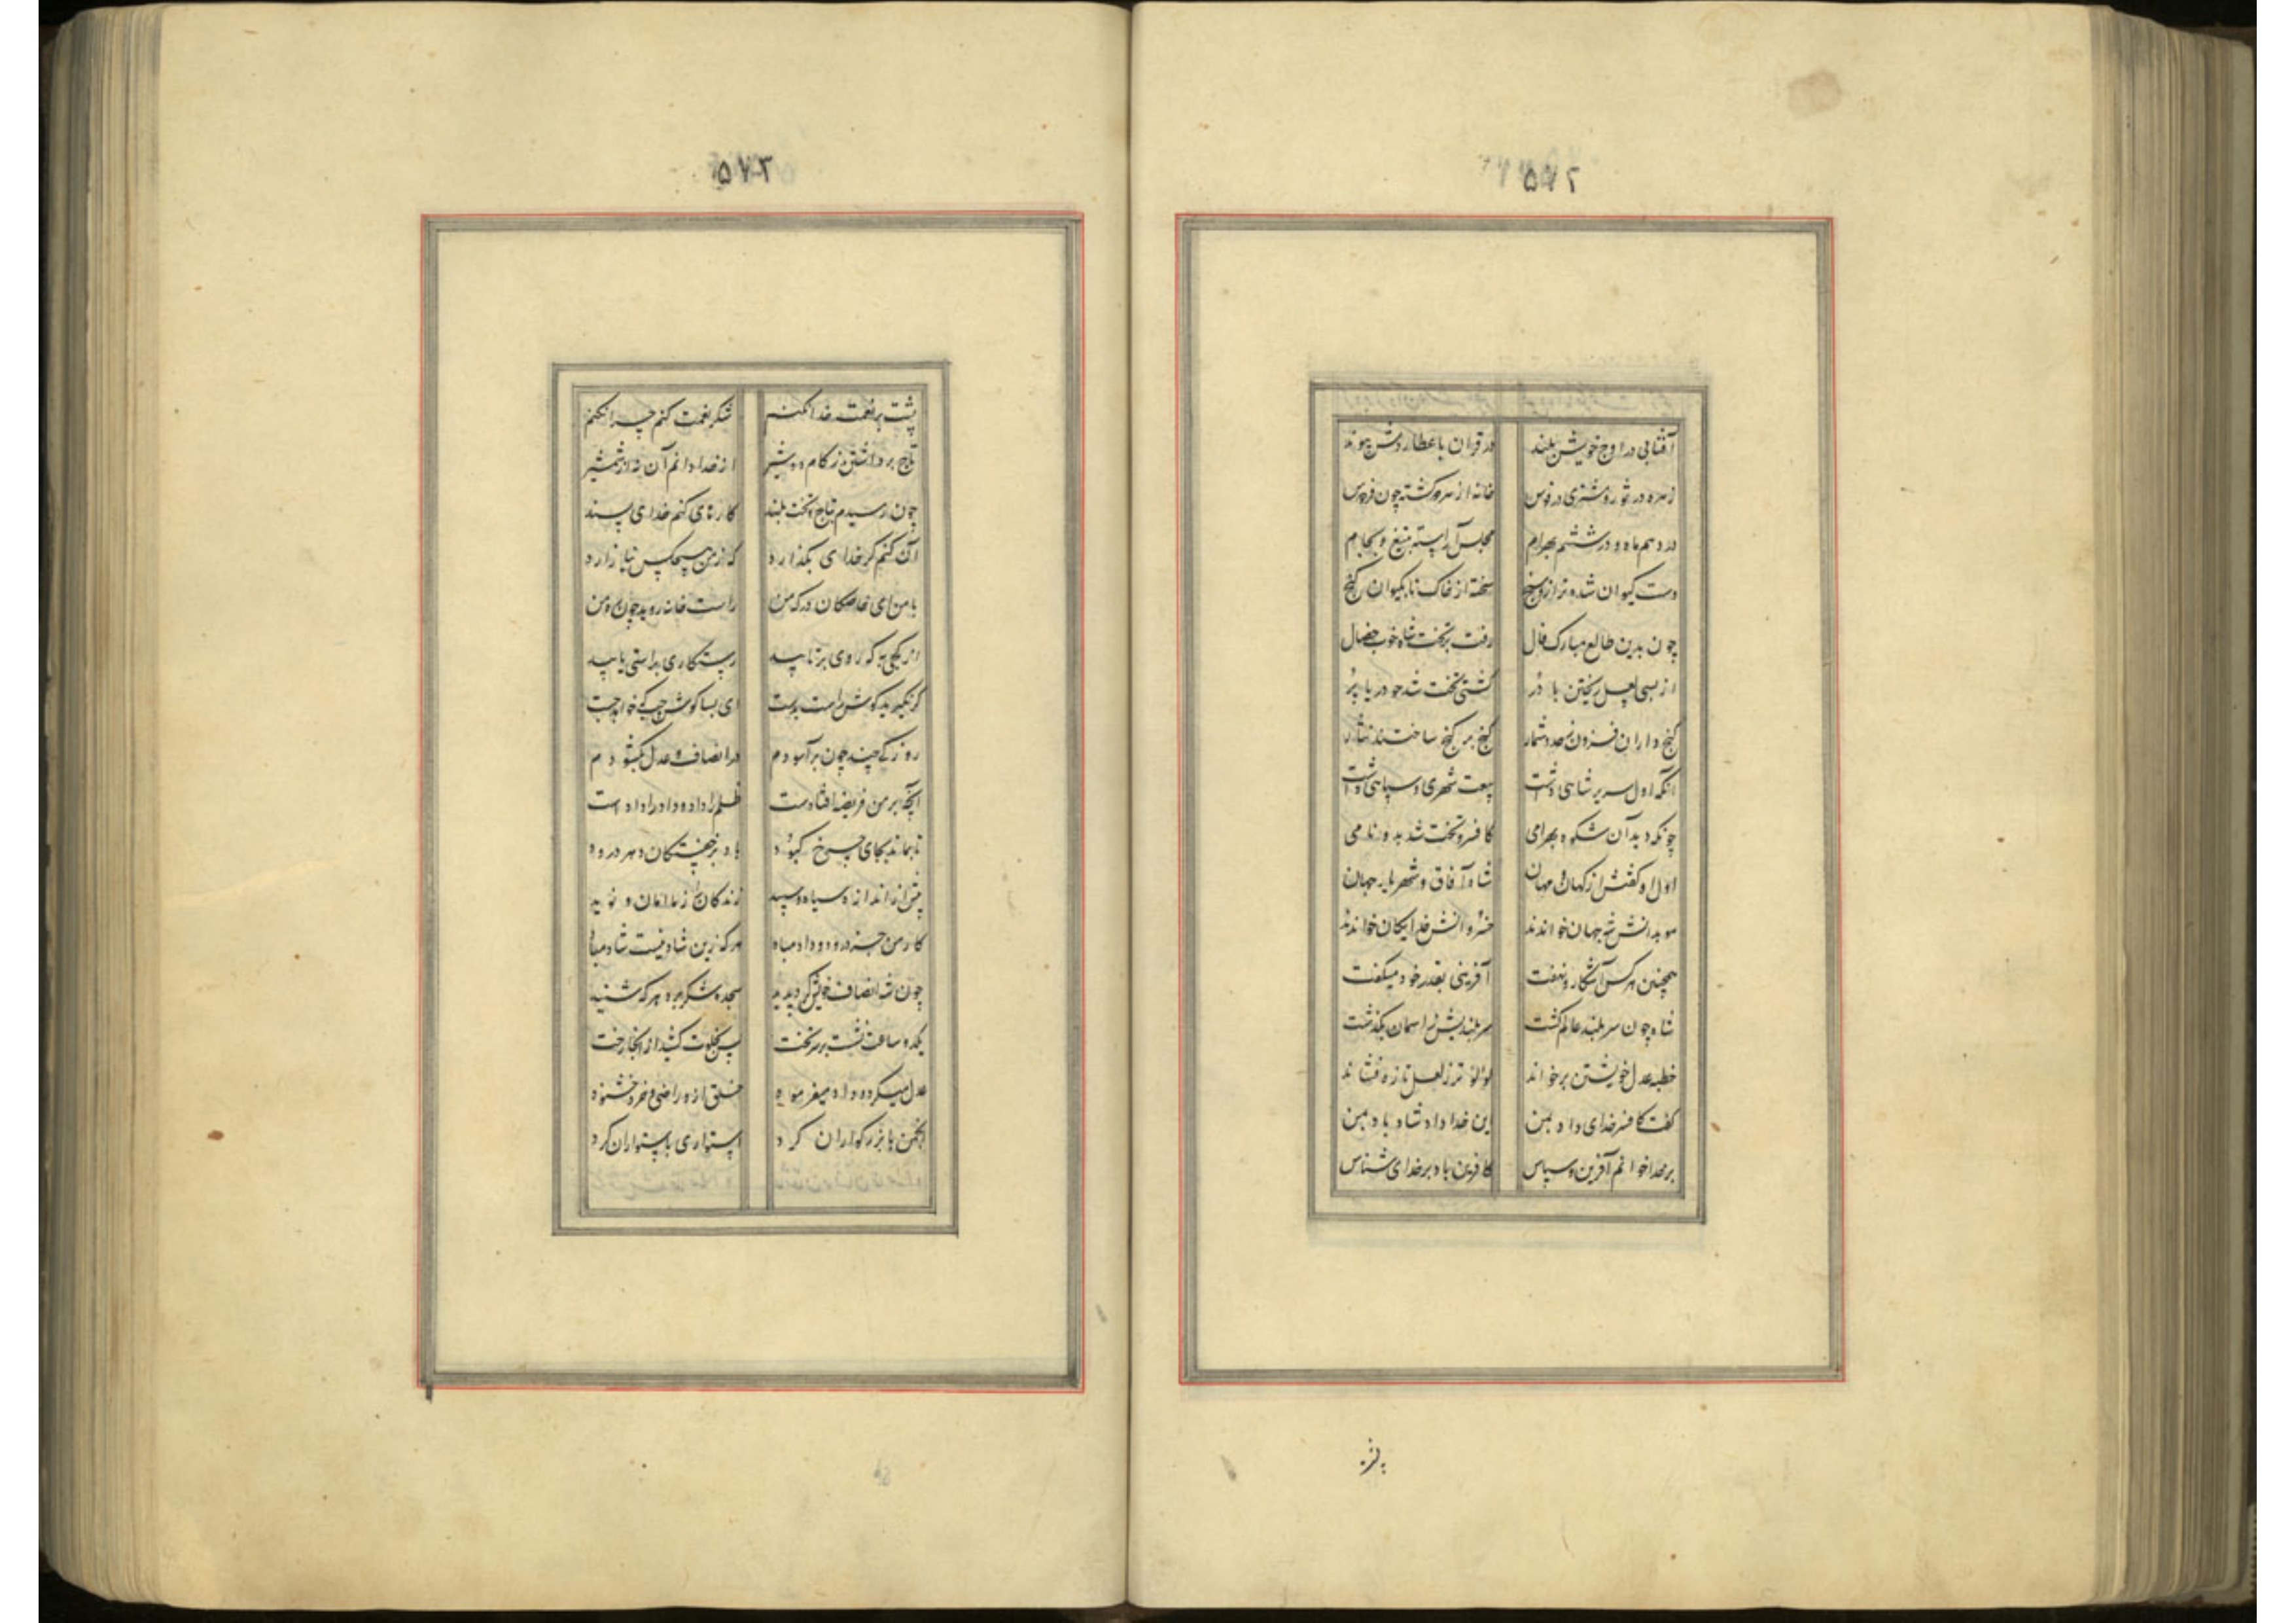 ۵۷۲
آفتابی در اوج خویش بلند در قران با عطاردش پیوند
زهره در ثور و مشتری در قوس خانه از هر دو گشته چون فردوس
در دهم ماه و در ششم بهرام مجلس آراسته بتیغ و بجام
دست کیوان شده ترازو سنج سخته از خاک تا بکیوان گنج
چون بدین طالع مبارک فال رفت بر تخت شاه خوب خصال
از بسی لعل ریختن با در کشتی تخت شد چو دریا پر
گنج داران فزون ز حد و شمار گنج بر گنج ساختند نثار
آنکه اول سریر شاهی داشت بیعت شهری و سپاهی داشت
چونکه دید آن شکوه بهرامی کافسر و تخت شد بدو نامی
اول او گفتش از کهان و مهان شاه آفاق و شهریار جهان
موبدانش شه جهان خواندند خسروانش خدایگان خواندند
همچنین هر کس آشکار و نهفت آفرینی بقدر خود میگفت
شاه چون سر بلند عالم گشت سربلندیش از آسمان بگذشت
خطبه عدل خویشتن برخواند لؤلؤ تر ز لعل تازه فشاند
گفت کافسر خدای داد بمن این خدا داد شاد باد بمن
بر خدا خوانم آفرین و سپاس کافرین باد بر خدای شناس
۵۷۳
پشت بر نعمت خدا نکنم شکر نعمت کنم چرا نکنم
تاج برداشتن ز کام دو شیر از خدا دانم آن نه از شمشیر
چون رسیدم بتاج و تخت بلند کارهای کنم خدای پسند
آن کنم گر خدای بگذارد که ز من هیچکس نیازارد
با من ای خاصگان درگه من راست خانه روید چون ره من
از کجی به که روی برتابید رستگاری براستی یابید
گر نگیرید گوش راست بدست ای بسا گوش چپ که خواهد خست
روزکی چند چون برآسودم در انصاف و عدل بگشودم
آنچه بر من فریضه افتادست ظلم را داد و داد را دادست
تا بماند بجای چرخ کبود باد بر خفتگان دهر درود
بیش از اندازه سیاه و سپید زندگان را ز ما امان و نوید
کار من جز درود و داد مباد هر که زین شاد نیست شاد مباد
چون شه انصاف خویش کرد پدید سجده شکر برد هر که شنید
یکدو ساعت نشست بر سر تخت پس بخلوت کشید از آنجا رخت
عدل میکرد و داد میفرمود خلق ازو راضی و خدا خشنود
انجمن با بزرگواران کرد استواری باستواران کرد